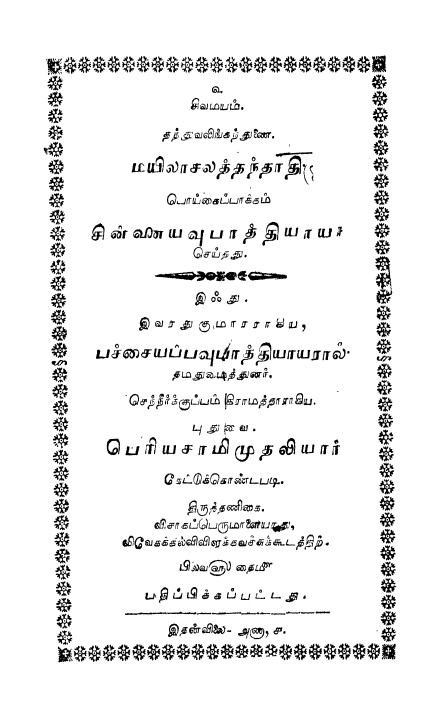 உ
சிவமயம்.
தத்துவலிங்கற்துணை.
மயிலாசலத்தந்தாதி
பொய்கைப்பாக்கம்
சின்னையவுபாத்தியாயர்
செய்தது.
இஃது.
இவரதுகுமாரராகிய,
பச்சையப்பவுபாத்தியாயரால்
தமதுகூடித்துனர்.
செந்நீர்க்குப்பம் கிராமத்தாராகிய.
புதுவை.
பெரியசாமிமுதலியார்
கேட்டுக்கொண்டபடி.
திருத்தணிகை.
விசாகப்பெருமாளையரது,
விவேகக்கல்விவிளக்கவச்சுக்கூடத்திற்.
பிலவ௵ தைமீ
பதிப்பிக்கப்பட்டது.
இதன்விலை- அணா, ச.